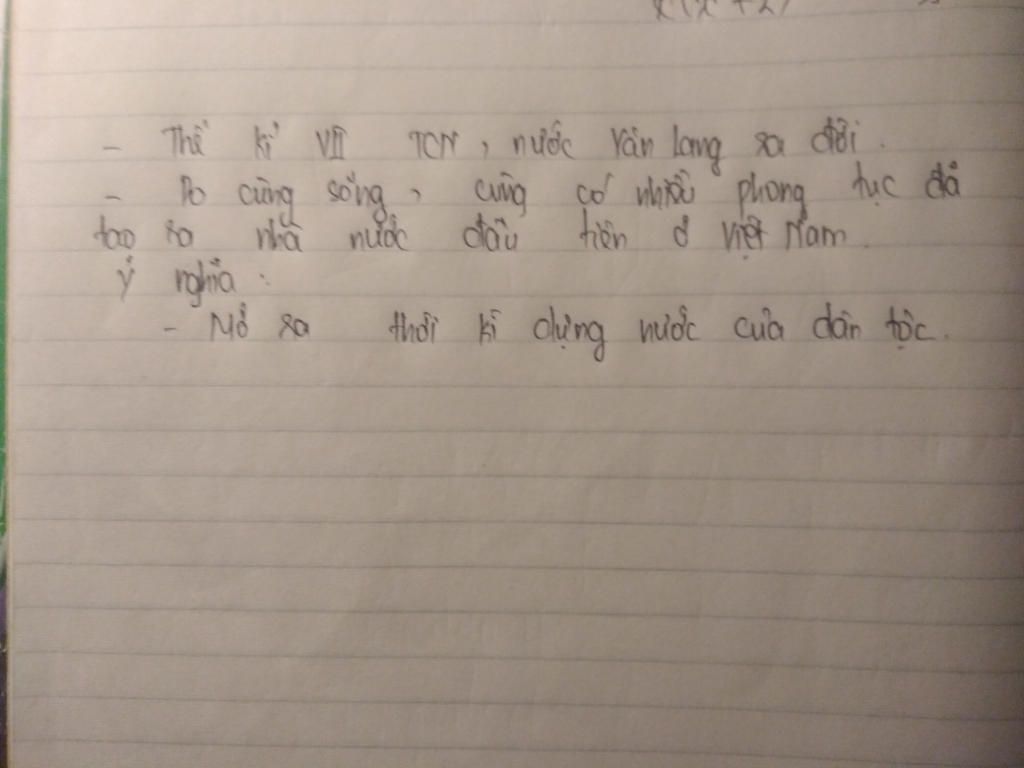 - Thế kỉ VII TCN, nước Văn Lang ra đời.
- Do cùng sống, cùng có nhiều phong tục đã
tạo ra nhà nước đầu tiên ở Việt Nam.
Ý nghĩa:
- Mở ra thời kì dựng nước của dân tộc.